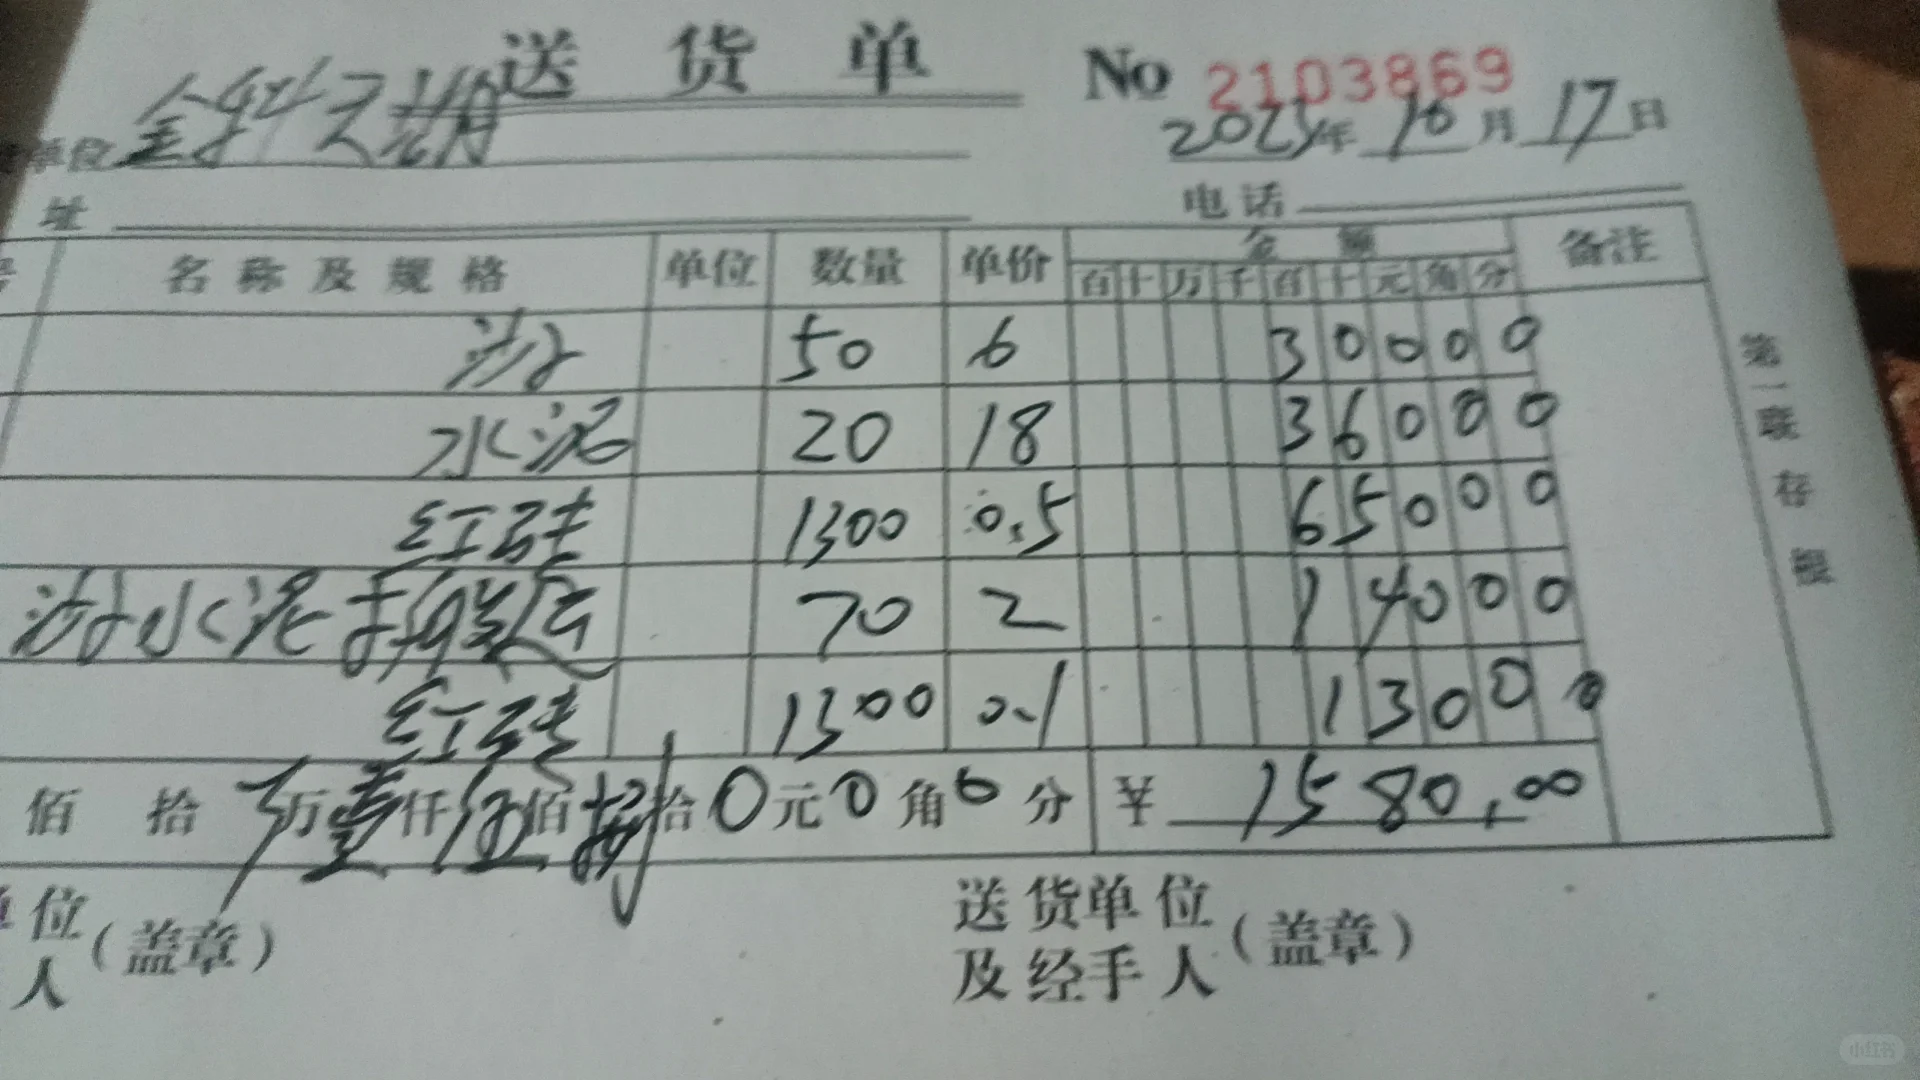 送货单 No 2103869
单位 金科天湖 2025年 10月 17日
址 电话
名称及规格 单位 数量 单价 金额 备注
百 十 万 千 百 十 元 角 分
沙子 50 6 3 0 0 0 0
水泥 20 18 3 6 0 0 0
红砖 1300 0.5 6 5 0 0 0
沙子水泥 70 2 1 4 0 0 0
红砖 1300 0.1 1 3 0 0 0
佰 拾 万壹仟伍佰捌拾0元0角0分 ¥ 1580.00
第一联存根
位 (盖章) 送货单位 (盖章)
人 及经手人
小红书